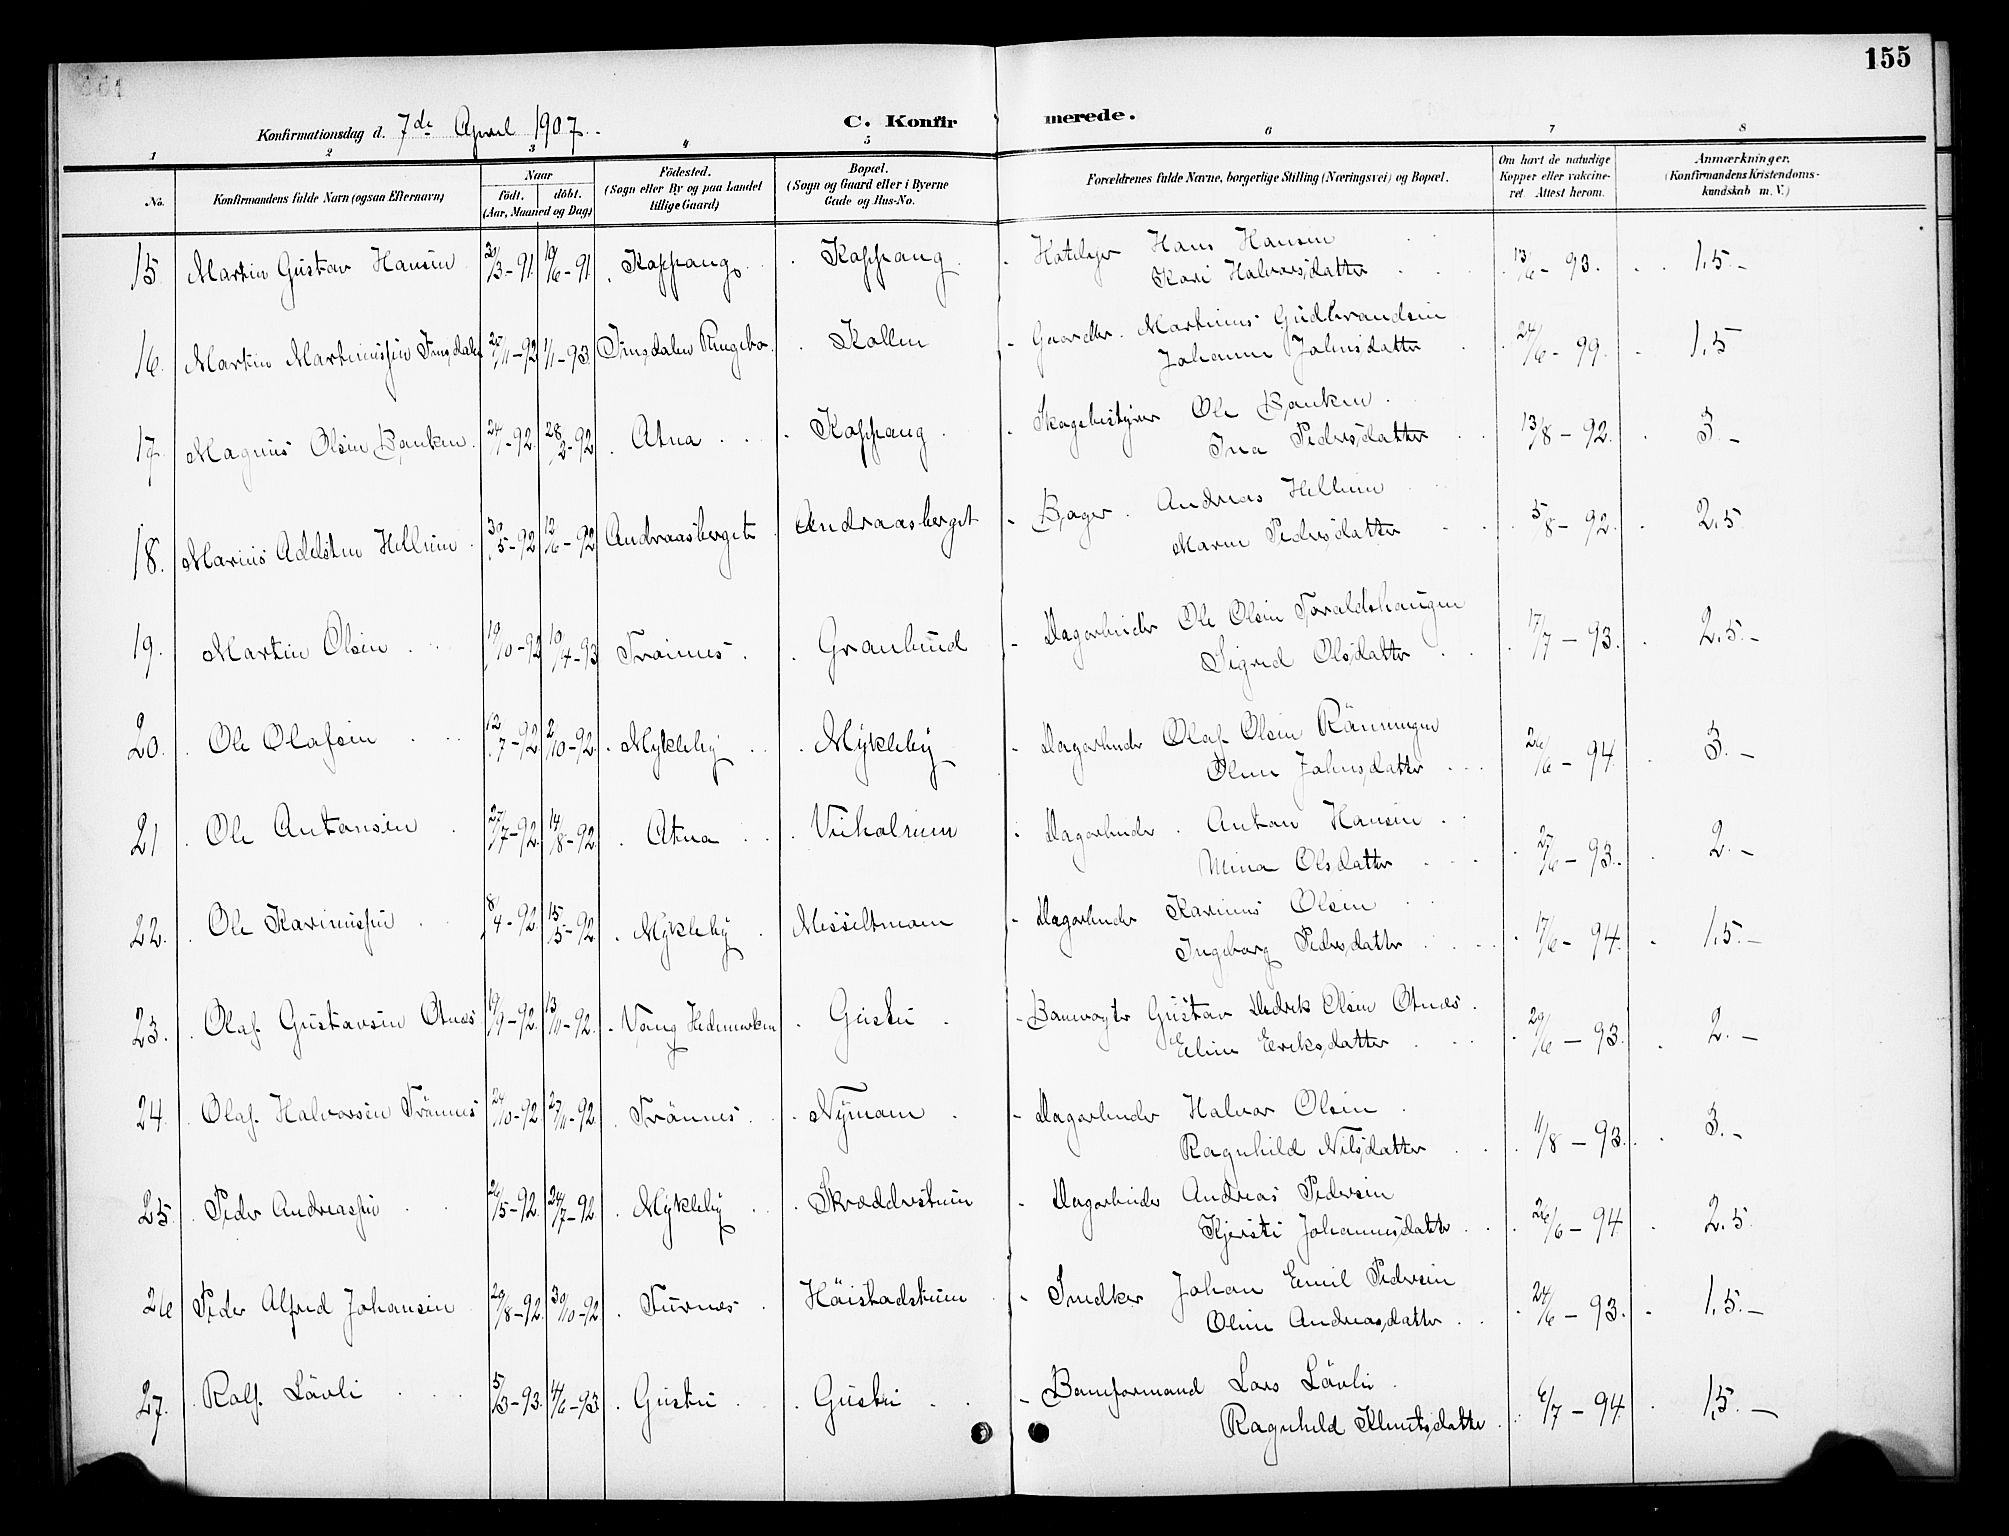 155
Konfirmationsdag d. 7de April 1907.
C. Konfirmerede.
1 2 3 4 5 6 7 8
No.
Konfirmandens fulde Navn (ogsaa Efternavn)
Naar
Födt. döbt.
(Aar, Maaned og Dag)
Födested.
(Sogn eller By og paa Landet
tillige Gaard)
Bopæl.
(Sogn og Gaard eller i Byerne
Gade og Hus-No.
Forældrenes fulde Navne, borgerlige Stilling (Næringsvei) og Bopæl.
Om havt de naturlige
Kopper eller vakcine-
ret Attest herom.
Anmærkninger,
(Konfirmandens Kristendoms-
kundskab m. V.)
15 Martin Gustav Hansen 30/3-91 14/6-91 Koppang Koppang - Hoteleier Hans Hansen
Kari Halvorsdatter 13/6-93. 1,5.-
16. Martin Martinussen Imsdalen 25/11-92 1/1-93 Imsdalen Ringebo Kollen - Gaardbr. Martinus Gudbrandsen
Johanne Johnsdatter 24/6-99. 1,5
17. Magnus Olsen Banken 24/1-92. 28/2-92 Atna Koppang - Skogbestyrer Ole Banken
Ina Pedersdatter 13/8-92. 3.-
18. Marius Adelsten Hellum 30/5-92 12/6-92 Andraasberget Andraasberget - Bager Andreas Hellum
Maren Pedersdatter 5/8-92. 2,5
19. Martin Olsen 19/10-92 10/4-93 Trönnes Granbud - Dagarbeider Ole Olsen Toraldshaugen
Sigrid Olsdatter 17/7-93. 2,5.-
20. Ole Olafsen 12/7-92. 2/10-92. Mykleby Mykleby - Dagarbeider Olaf Olsen Rönningen
Oline Johnsdatter 26/6-94. 3.-
21 Ole Antonsen 27/7-92. 14/8-92. Atna - Dagarbeider Anton Hansen
Mina Olsdatter 27/6-93. 2.-
22. Ole Karinussen 8/4-92. 15/5-92. Mykleby Messeltmoen - Dagarbeider Karinus Olsen
Ingeborg Pedersdatter 17/6-94. 1,5.-
23. Olaf Gustavsen Otnes 19/9-92. 13/11-92. Vang Hedemarken Gustu - Banevogter Gustav Didrik Olsen Otnæs
Eline Eriksdatter 29/6-93. 2.-
24. Olaf Halvorsen Trönnes 24/10-92. 27/11-92. Trönnes Nymoen - Dagarbeider Halvor Olsen
Ragnhild Nilsdatter 11/8-93. 3.-
25. Peder Andreassen 26/5-92. 24/7-92. Mykleby Skrædderstuen - Dagarbeider Andreas Pedersen
Kjersti Johannesdatter 26/6-94. 2,5
26 Peder Alfred Johansen 29/8-92. 30/10-92 Furnes Höistadstuen - Snedker Johan Emil Pedersen
Oline Andreasdatter 24/6-93. 1,5.-
27. Ralf Lövli 5/3-93. 4/6-93 Gustu Gustu - Baneformand Lars Lövli
Ragnhild Klmetsdatter 6/7-94. 1,5.-